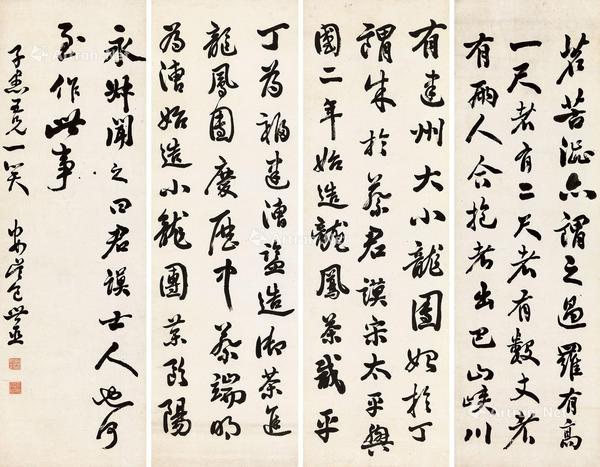 茗苦澀亦謂之過羅有高
一尺者有二尺者有數丈者
有兩人合抱者出巴山峽川
有建州大小龍團始於丁
謂成於蔡君謨宋太平興
國二年始造龍鳳茶咸平
丁為福建漕監造御茶進
龍鳳團慶歷中蔡端明
為漕始造小龍團茶歐陽
永叔聞之曰君謨士人也何
至作此事
子 五兄一笑 安吳包世臣